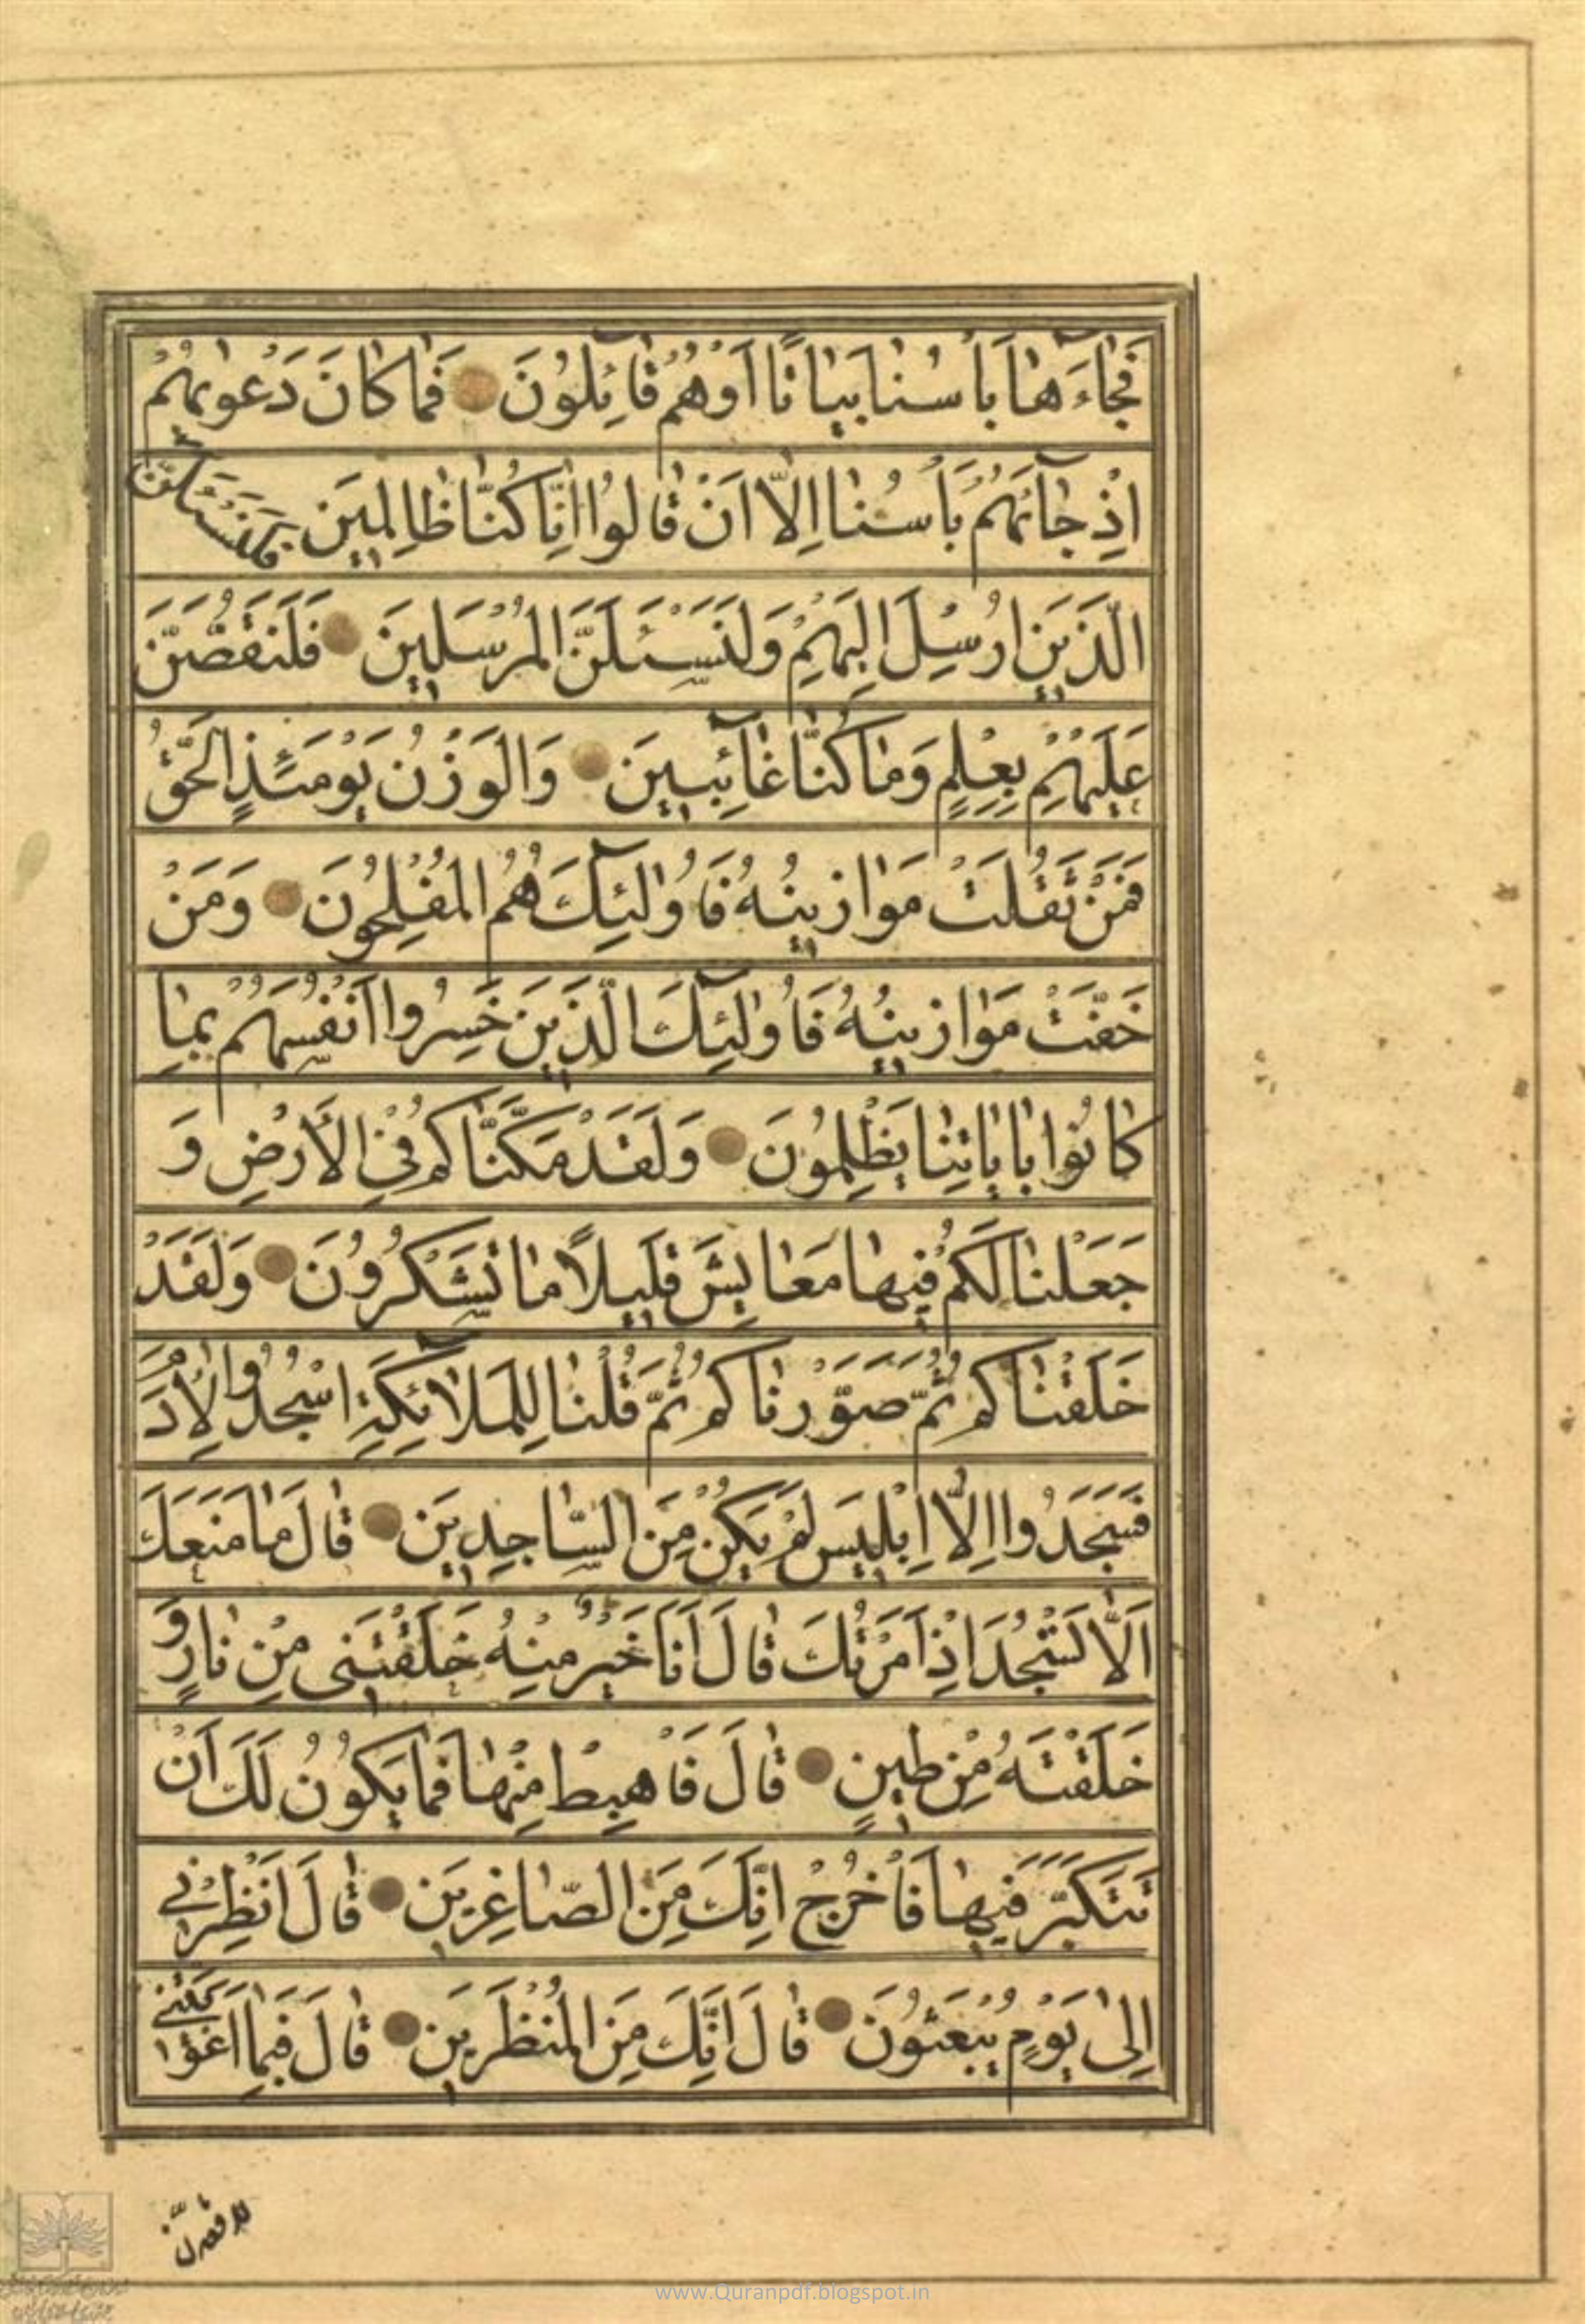 فَجٰاءَهٰا بَأْسُنٰا بَيٰاتًا اَوْهُمْ قٰائِلُونَ فَمٰا كٰانَ دَعْوٰيهُمْ
اِذْ جٰآئَهُمْ بَأْسُنٰا اِلّٰا اَنْ قٰالُوا اِنّٰا كُنّٰا ظٰالِمِينَ فَلَنَسْئَلَنَّ
الَّذَينَ اُرْسِلَ اِلَيْهِمْ وَلَنَسْئَلَنَّ الْمُرْسَلِينَ فَلَنَقُصَّنَّ
عَلَيْهِمْ بِعِلْمٍ وَمٰا كُنّٰا غٰآئِبِينَ وَالْوَزْنُ يَوْمَئِذٍ الْحَقُّ
فَمَنْ ثَقُلَتْ مَوٰازِينُهُ فَاُولٰئِكَ هُمُ الْمُفْلِحُونَ وَمَنْ
خَفَّتْ مَوٰازِينُهُ فَاُولٰئِكَ الَّذَينَ خَسِرُوا اَنْفُسَهُمْ بِمٰا
كٰانُوا بِاٰيٰاتِنٰا يَظْلِمُونَ وَلَقَدْ مَكَّنّٰاكُمْ فِي الْاَرْضِ وَ
جَعَلْنٰا لَكُمْ فِيهٰا مَعٰايِشَ قَلِيلاً مٰا تَشْكُرُونَ وَلَقَدْ
خَلَقْنٰاكُمْ ثُمَّ صَوَّرْنٰاكُمْ ثُمَّ قُلْنٰا لِلْمَلٰائِكَةِ اسْجُدُوا لِاٰدَمَ
فَسَجَدُوا اِلّٰا اِبْلِيسَ لَمْ يَكُنْ مِنَ السّٰاجِدِينَ قٰالَ مٰا مَنَعَكَ
اَلّٰا تَسْجُدَ اِذْ اَمَرْتُكَ قٰالَ اَنَا خَيْرٌ مِنْهُ خَلَقْتَنِى مِنْ نٰارٍ وَ
خَلَقْتَهُ مِنْ طِينٍ قٰالَ فَاهْبِطْ مِنْهٰا فَمٰا يَكُونُ لَكَ اَنْ
تَتَكَبَّرَ فِيهٰا فَاخْرُجْ اِنَّكَ مِنَ الصّٰاغِرِينَ قٰالَ اَنْظِرْنِي
اِلىٰ يَوْمٍ يُبْعَثُونَ قٰالَ اِنَّكَ مِنَ الْمُنْظَرِينَ قٰالَ فَبِمٰا اَغْوَيْتَنِي
لاقعدن
www.Quranpdf.blogspot.in